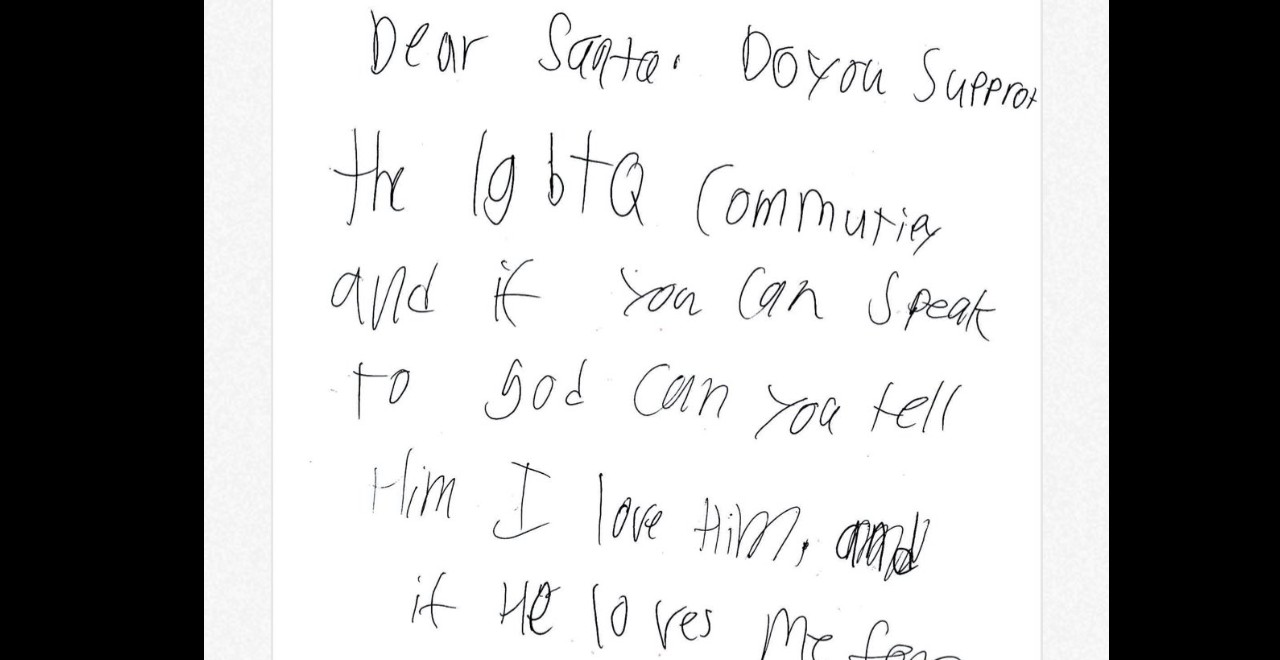 Dear Santa. Do you Supprot
the lgbtQ Commutiey
and if you can speak
to god can you tell
Him I love Him, and
if He loves me